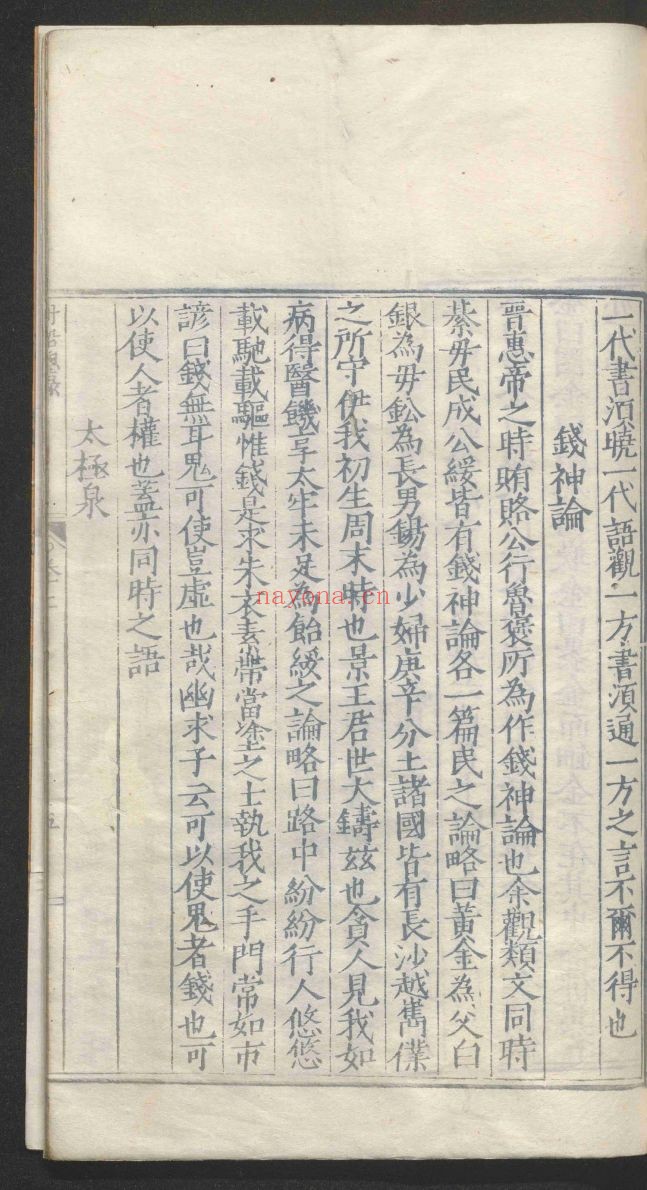 一代書須曉一代語觀一方書須通一方之言不爾不得也
錢神論
晉惠帝之時賄賂公行魯褒所為作錢神論也余觀類文同時
綦毋民成公綏皆有錢神論各一篇民之論略曰黃金為父白
銀為毋鈆為長男錫為少婦庚辛分土諸國皆有長沙越嶲僕
之所守伊我初生周末時也景王君世大鑄茲也貪人見我如
病得醫饑享太牢未足為飴綏之論略曰路中紛紛行人悠悠
載馳載驅惟錢是求朱衣素帶當塗之士執我之手門常如市
諺曰錢無耳鬼可使豈虛也哉幽求子云可以使鬼者錢也可
以使人者權也蓋亦同時之語
太極泉
五
nayona.cn